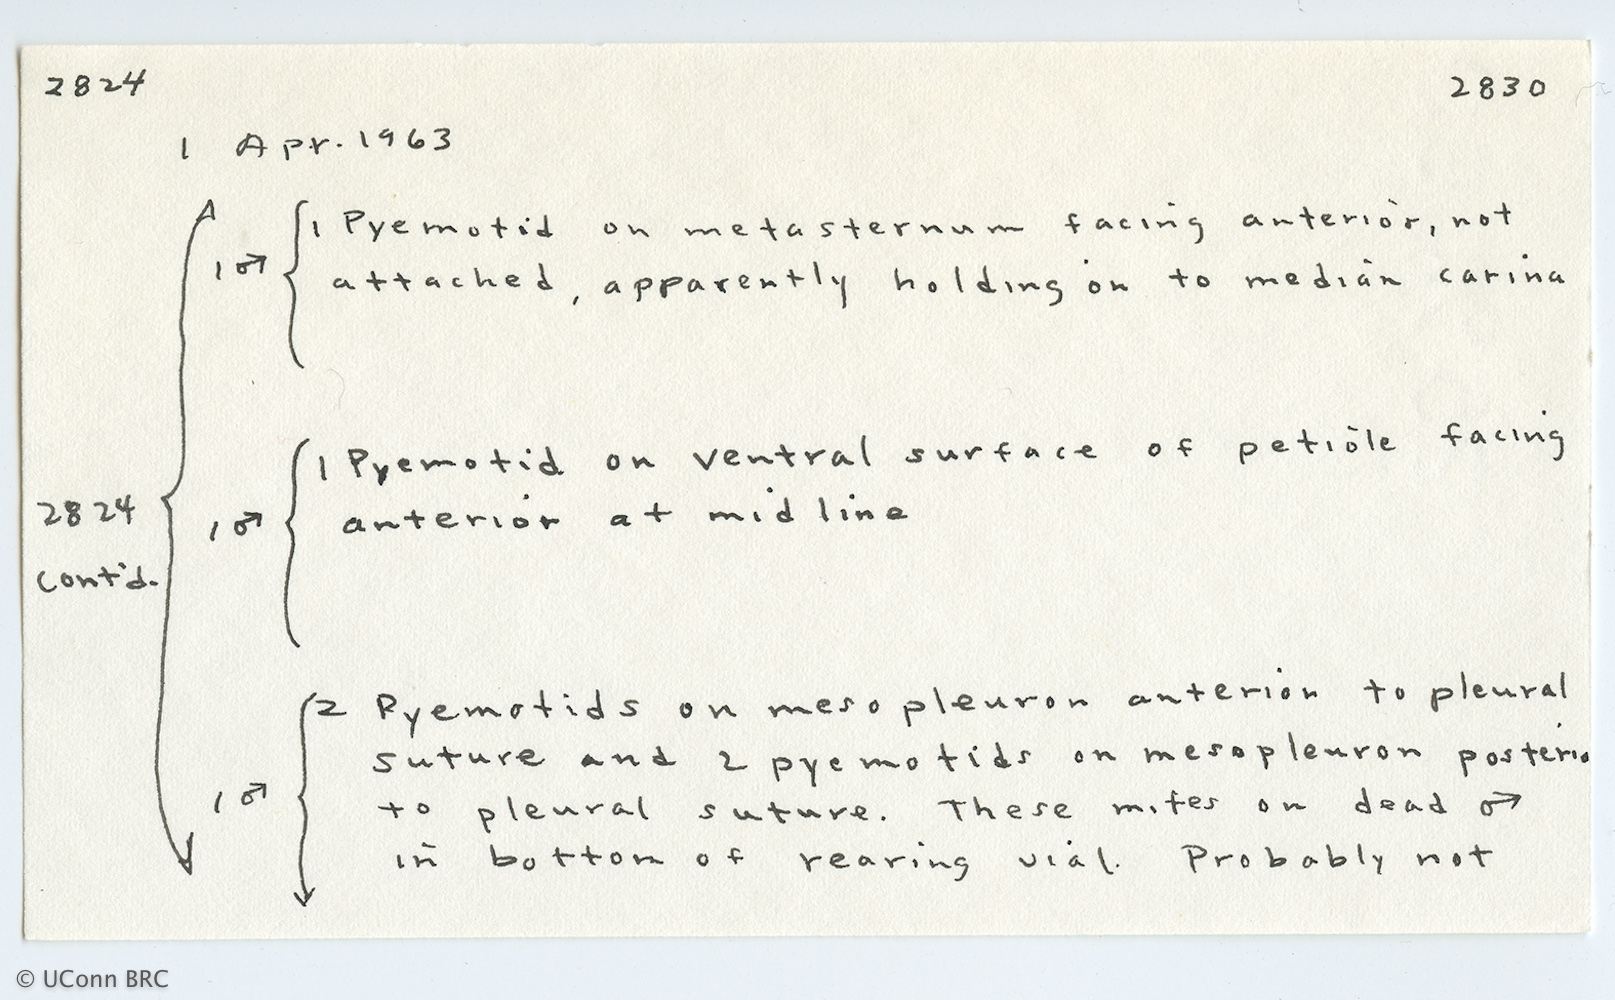 2824 2830
1 Apr. 1963
1 ♂ 1 Pyemotid on metasternum facing anterior, not
attached, apparently holding on to median carina
2824 cont'd.
1 ♂ 1 Pyemotid on ventral surface of petiole facing
anterior at midline
1 ♂ 2 Pyemotids on mesopleuron anterior to pleural
suture and 2 pyemotids on mesopleuron posterio
to pleural suture. These mites on dead ♂
in bottom of rearing vial. Probably not
© UConn BRC